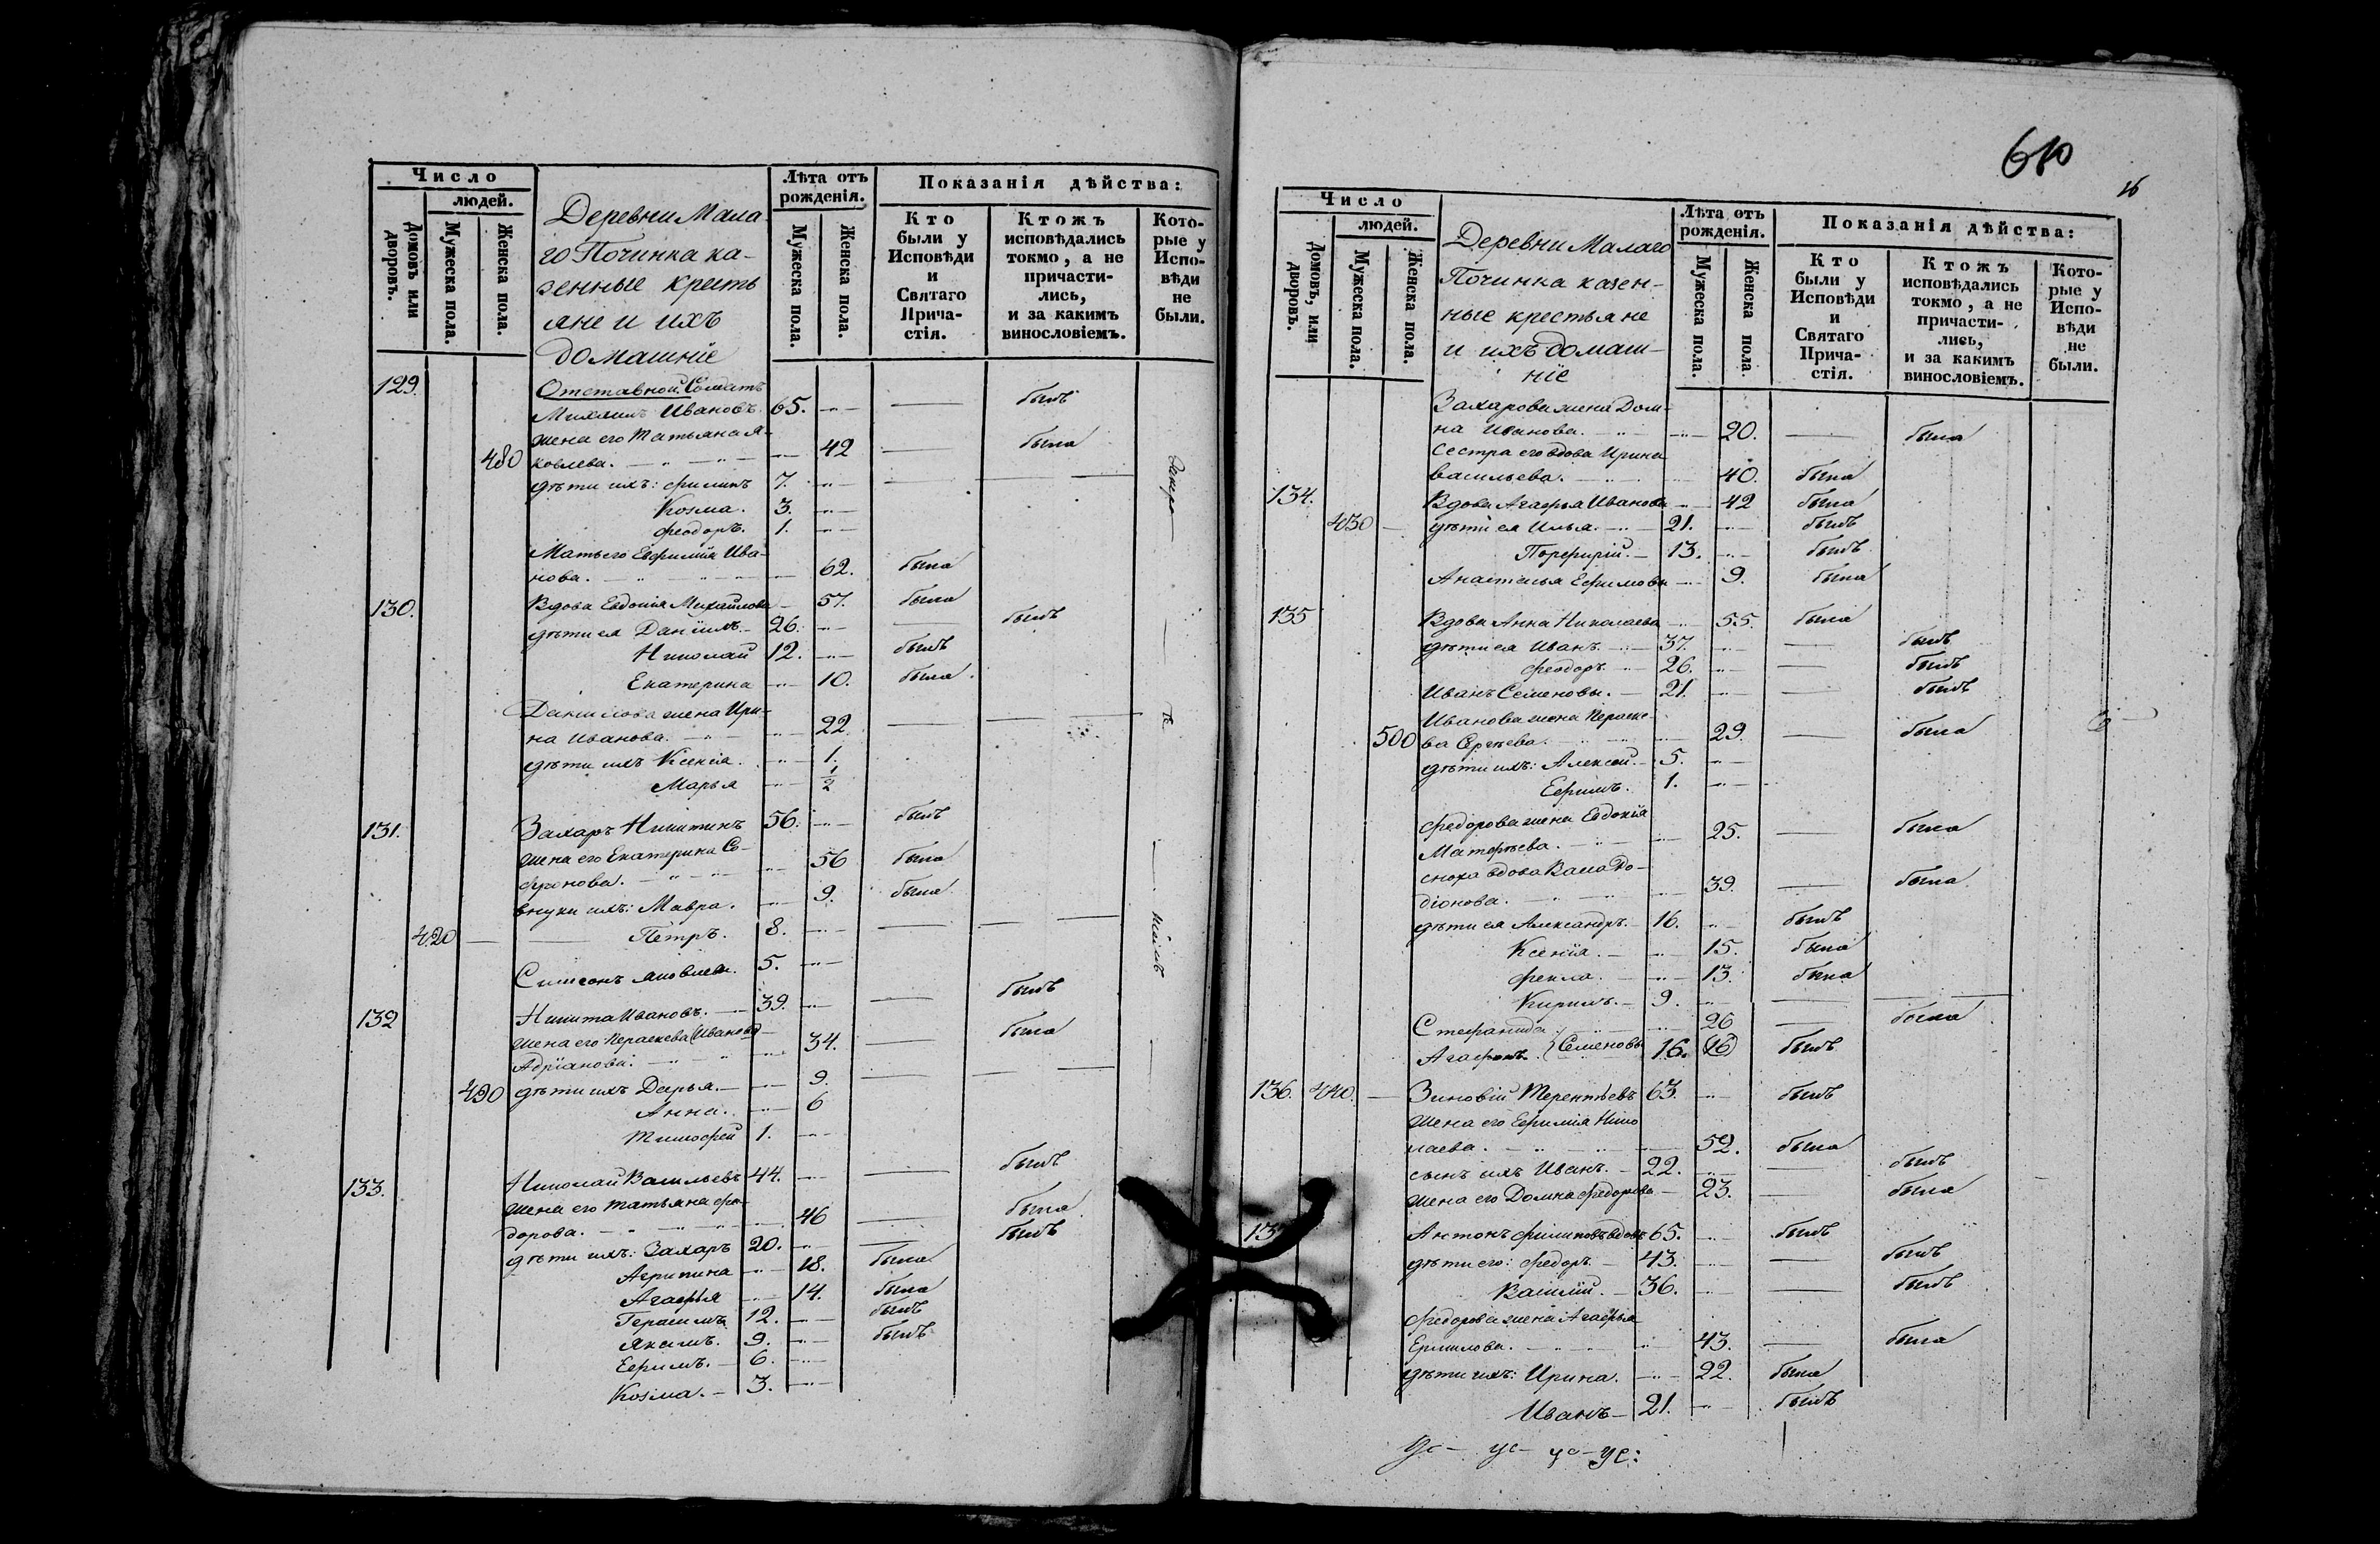 Число
людей.
Домовъ или дворовъ.
Мужеска пола.
Женска пола.
Деревни Мала-
го Починка ка-
зенные кресть
яне и ихъ
домашніе
Лѣта отъ рожденія.
Мужеска пола.
Женска пола.
Показанія дѣйства:
Кто были у Исповѣди и Святаго Прича-стія.
Ктожъ исповѣдались токмо, а не причасти-лись, и за какимъ винословіемъ.
Кото-рые у Испо-вѣди не были.
129. Отставной Солдатъ
Михаилъ Ивановъ. 65. былъ
жена его Татьяна Я-
480 ковлева. 42 была
дѣти ихъ: Филипъ 7.
Козма. 3.
Феодоръ. 1.
Мать его Евфимія Ива-
нова. 62. была
130. Вдова Евдокія Михайлова 57. была
дѣти ея Даніилъ 26. былъ
Николай 12. былъ
Екатерина 10. была
Данилова жена Ири-
на Иванова. 22
дѣти ихъ Ксенія. 1.
Марья 1/2
131. Захаръ Никитинъ 56. былъ
жена его Екатерина Со-
фронова. 56 была
внуки ихъ: Мавра. 9. была
420 Петръ. 8.
Симеонъ Яковлевы. 5.
132 Никита Ивановъ. 39. былъ
жена его Параскева (Иванова)
Адріанова. 34. была
490 дѣти ихъ Дарья. 9.
Анна. 6
Тимофей 1.
133. Николай Васильевъ 44. былъ
жена его Татьяна Фео-
дорова. 46 была
дѣти ихъ: Захаръ 20. былъ
Агрипина 18. была
Агафья 14. была
Герасимъ 12. былъ
Якимъ. 9. былъ
Ефимъ. 6.
Козма. 3.
610
Число
людей.
Домовъ, или дворовъ.
Мужеска пола.
Женска пола.
Деревни Малаго
Починка казен-
ные крестьяне
и ихъ домаш-
ніе
Лѣта отъ рожденія.
Мужеска пола.
Женска пола.
Показанія дѣйства:
Кто были у Исповѣди и Святаго Прича-стія.
Ктожъ исповѣдались токмо, а не причасти-лись, и за какимъ винословіемъ.
Кото-рые у Испо-вѣди не были.
Захарова жена Дом-
на Иванова. 20. была
Сестра его вдова Ирина
Васильева. 40. была
134. Вдова Агафья Иванова 42 была
430 дѣти ея Илья. 21. былъ
Порфирій. 13. былъ
Анастасья Ефимовы 9. была
135 Вдова Анна Николаева 55. была
дѣти ея Иванъ. 37. былъ
Феодоръ 26. былъ
Иванъ Семеновы. 21. былъ
Иванова жена Параске-
500 ва Сергѣева. 29. была
дѣти ихъ: Алексей. 5.
Ефимъ. 1.
Федорова жена Евдокія
Матфѣева. 25. была
сноха вдова Васса Ро-
діонова. 39. была
дѣти ея Александръ. 16. былъ
Ксенія. 15. была
Фекла. 13. была
Кирилъ. 9.
Стефанида 26 была
Агафонъ. } Семеновы 16. (16) былъ
136. 440. Зиновій Терентьевъ 63. былъ
жена его Ефимія Нико
лаева. 52. была
сынъ ихъ Иванъ. 22. былъ
жена его Домна Федорова 23. была
137 Антонъ Филиповъ вдовъ 65. былъ
дѣти его: Федоръ 43. былъ
Василій. 36. былъ
Федорова жена Агафья
Ермилова. 43. была
дѣти ихъ: Ирина. 22. была
Иванъ 21. былъ